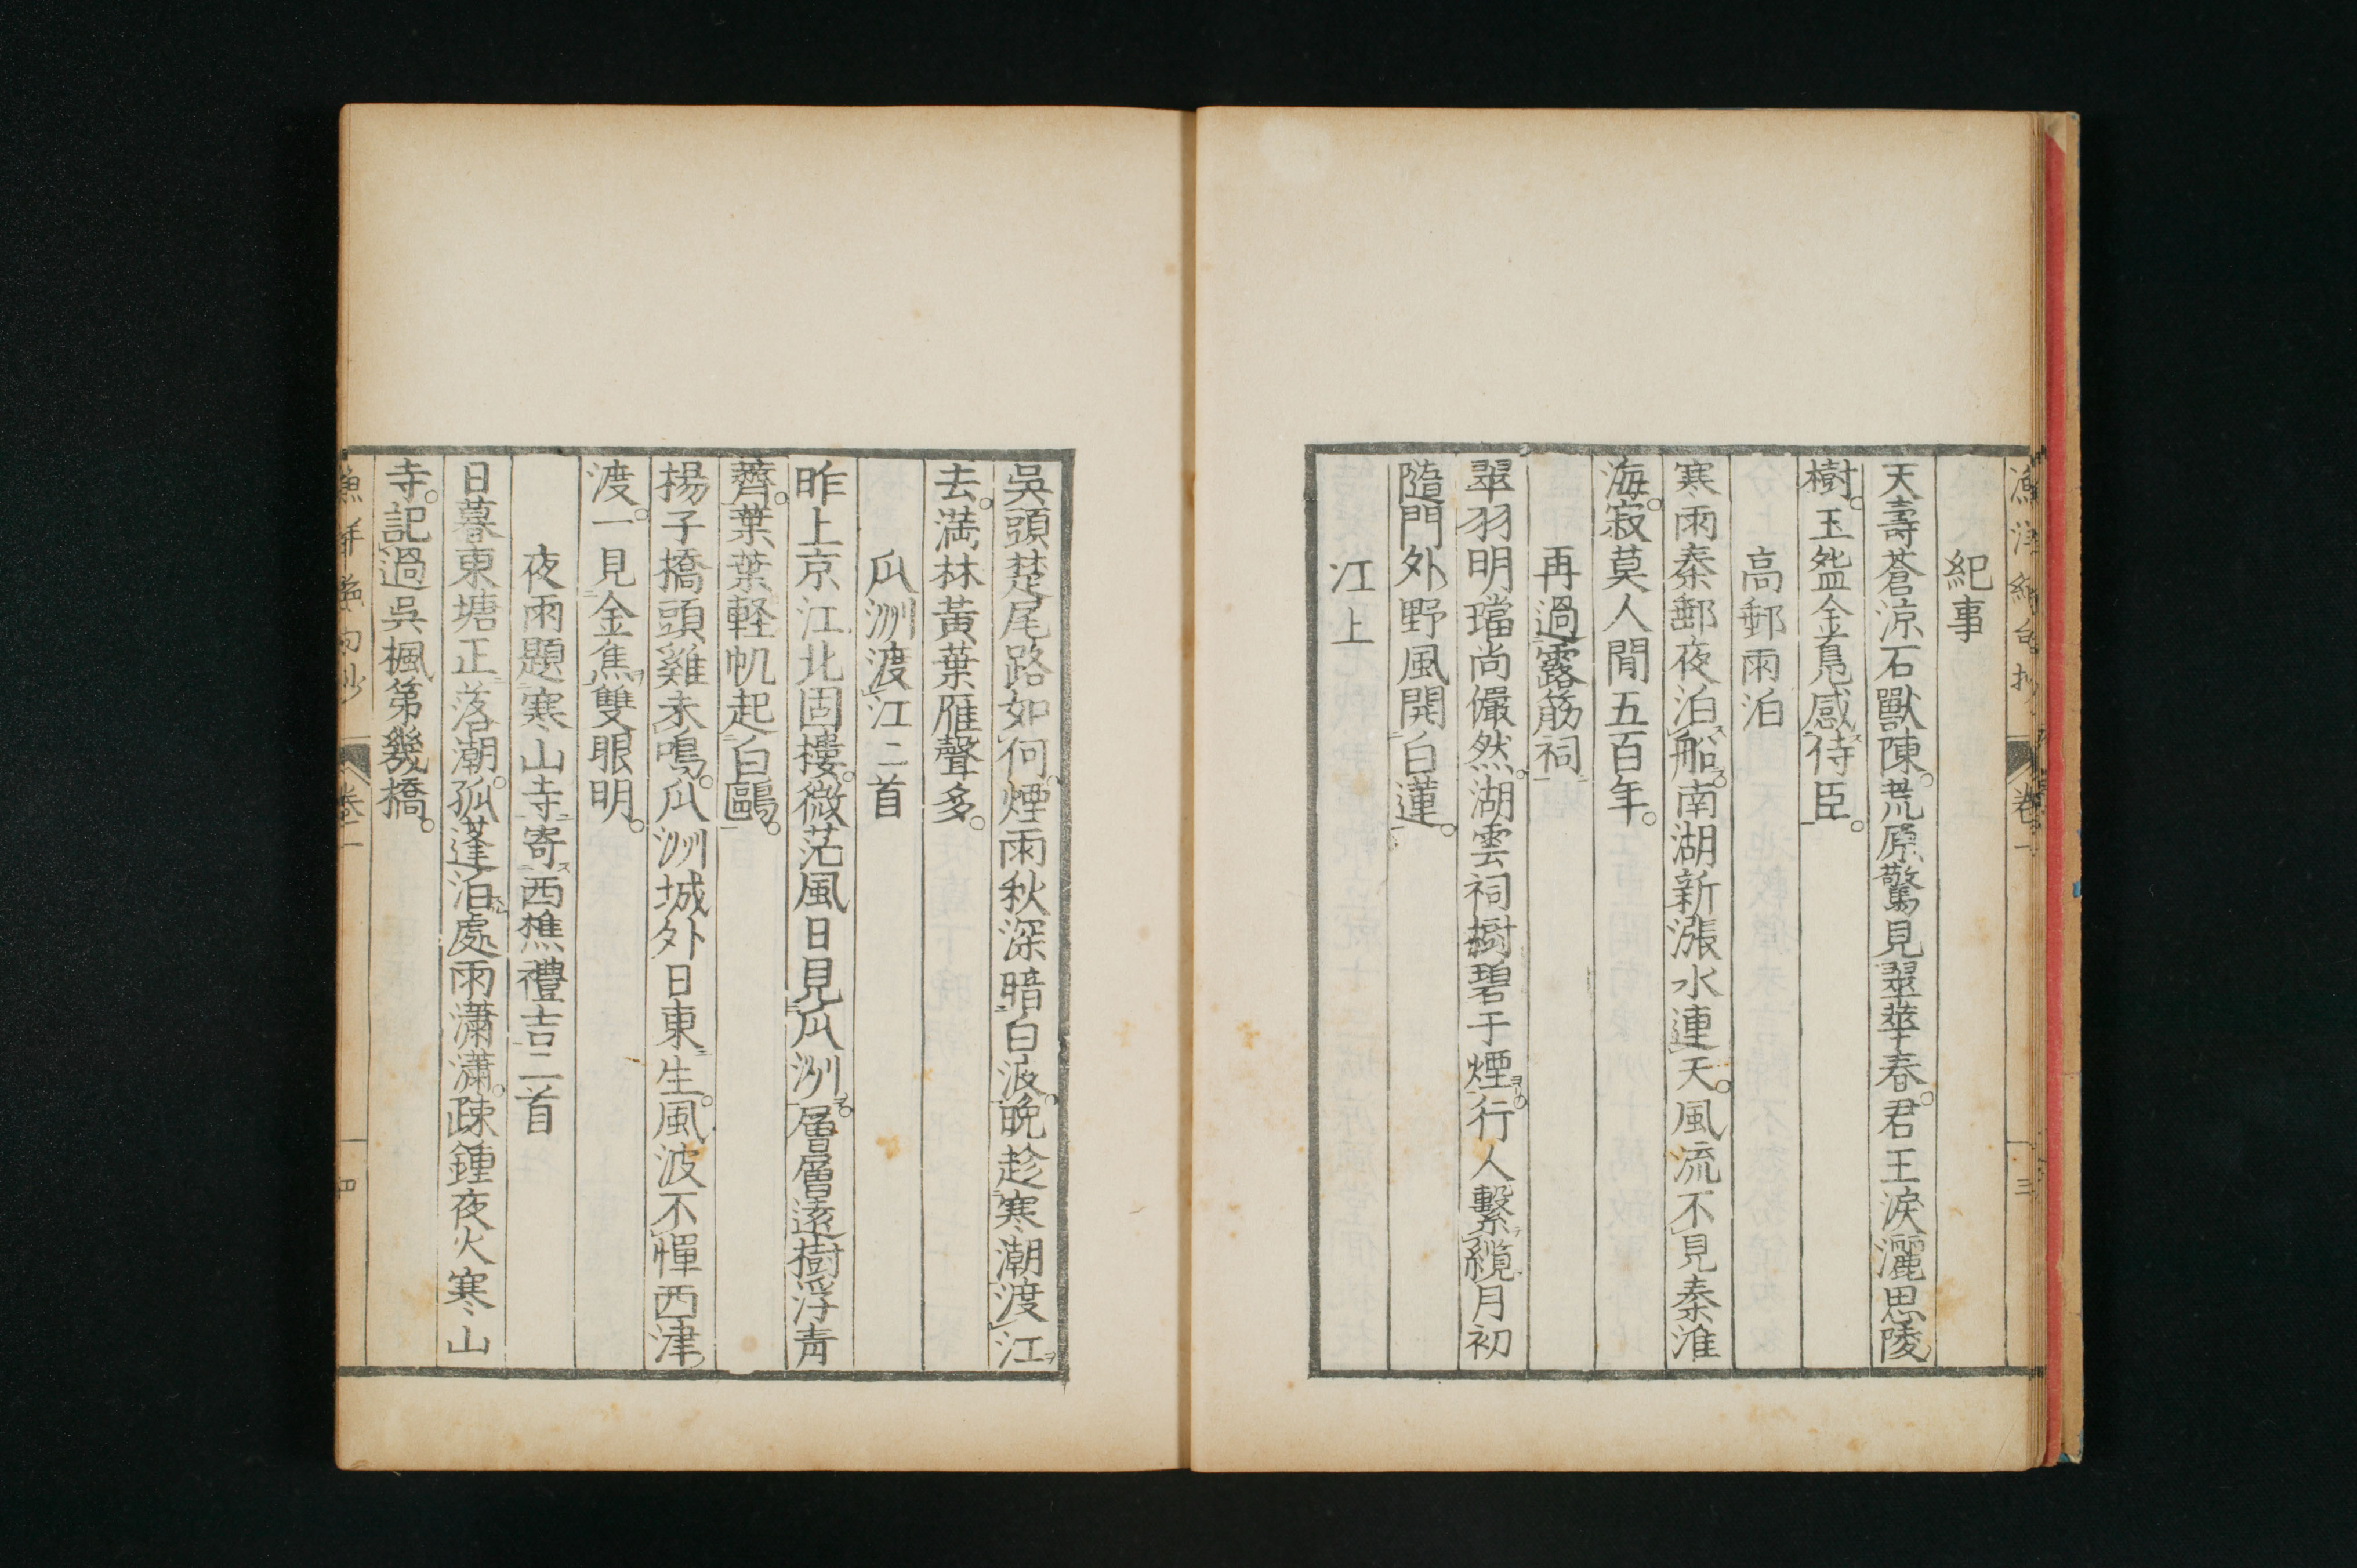 紀事
天壽蒼涼石獸陳。荒原驚見翠華春。君王淚灑思陵
樹。玉盌金鳧感侍臣。
高郵雨泊
寒雨秦郵夜泊船。南湖新漲水連天。風流不見秦淮
海。寂莫人間五百年。
再過露筋祠
翠羽明璫尚儼然。湖雲祠樹碧于煙。行人繫纜月初
墮門外野風開白蓮。
江上
吳頭楚尾路如何。煙雨秋深暗白波。晚趁寒潮渡江
去。滿林黃葉雁聲多。
瓜洲渡江二首
昨上京江北固樓。微茫風日見瓜洲。層層遠樹浮青
薺。葉葉軽帆起白鷗。
揚子橋頭雞未鳴。瓜洲城外日東生。風波不憚西津
渡。一見金焦雙眼明。
夜雨題寒山寺寄西樵禮吉二首
日暮東塘正落潮。孤蓬泊處雨瀟瀟。疎鍾夜火寒山
寺。記過吳楓第幾橋。
卷二
四